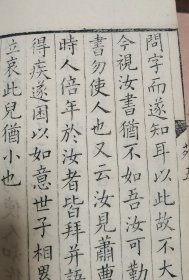 問字而遂知耳以此故不大
今視汝書猶不如吾汝可勤
書勿使人也汝見蕭曹
時人倍年於汝者皆拜并語
得疾遂困以如意世子相累
立哀此兒猶小也